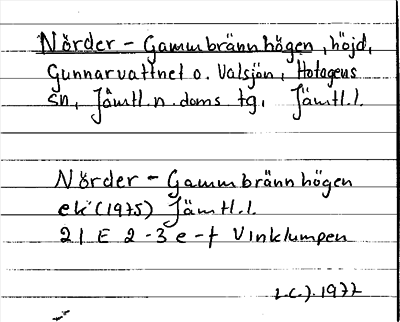 Nörder - Gammbrännhögen, höjd,
Gunnarvattnet o. Valsjön, Hotagens
sn, Jämtl. n. doms tg, Jämtl. l.
Nörder - Gammbrännhögen
ek (1975) Jämtl. l.
21 E 2-3 e-f Vinklumpen
1977